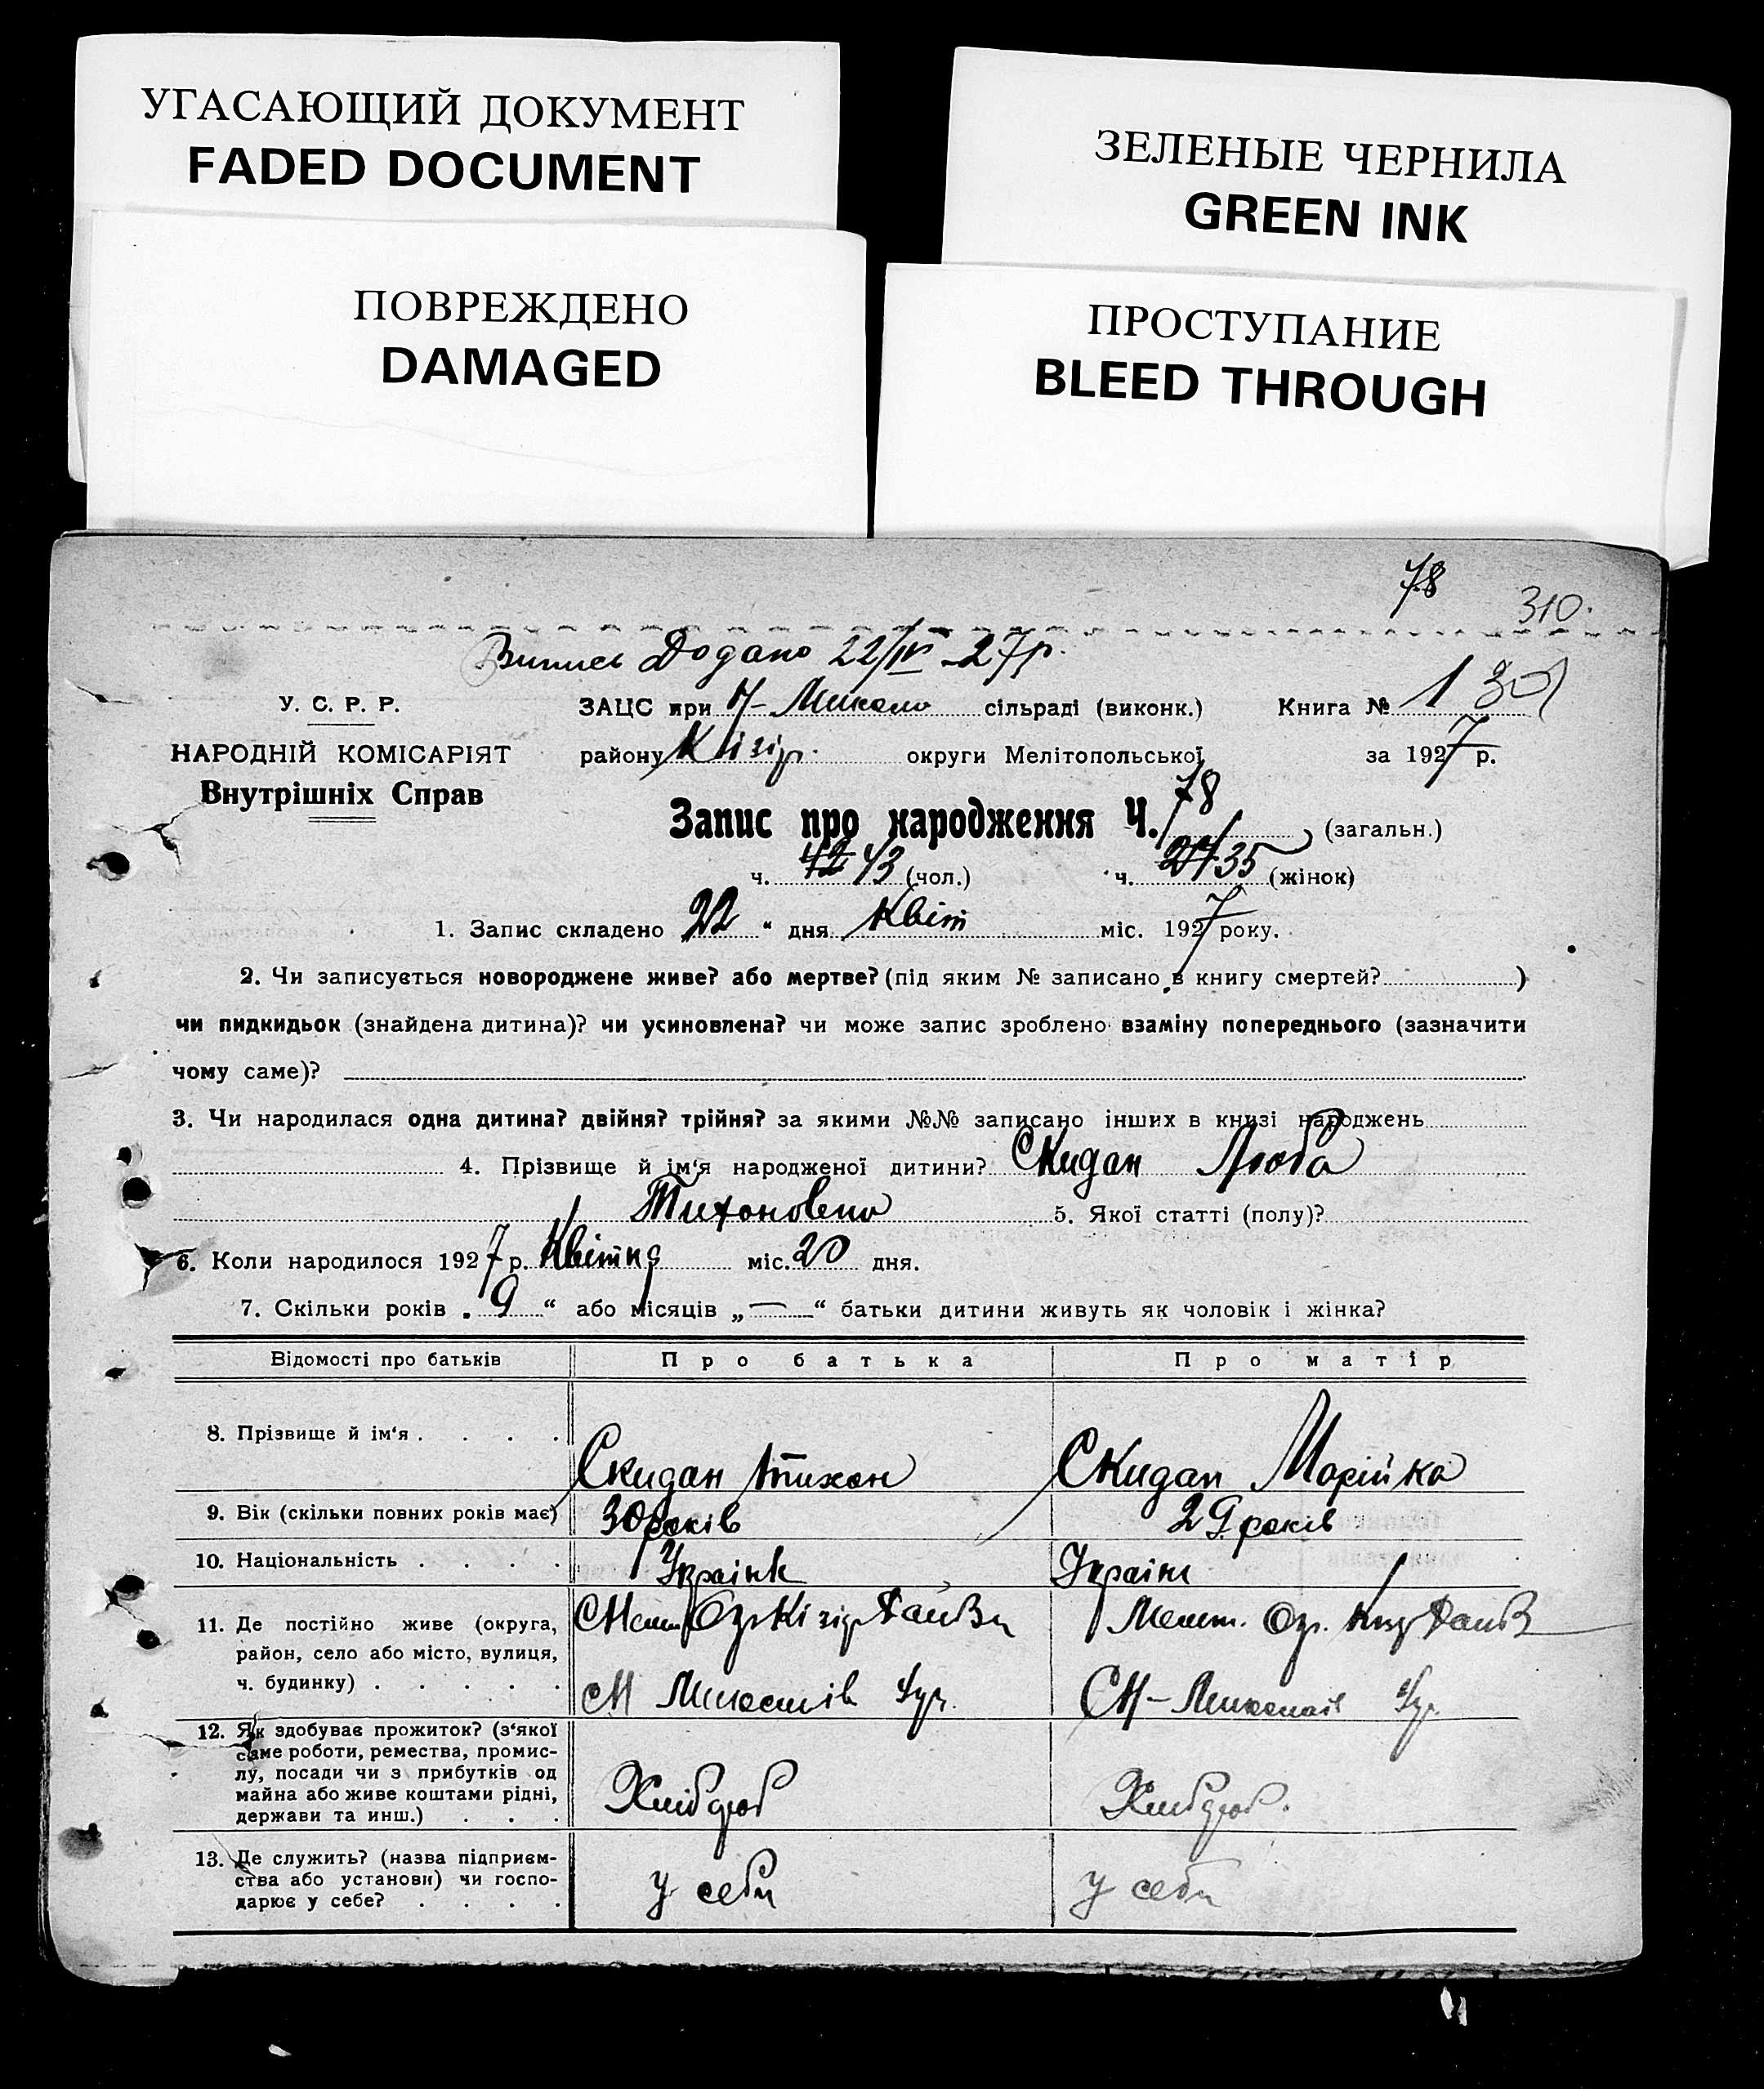 УГАСАЮЩИЙ ДОКУМЕНТ
FADED DOCUMENT
ЗЕЛЕНЫЕ ЧЕРНИЛА
GREEN INK
ПОВРЕЖДЕНО
DAMAGED
ПРОСТУПАНИЕ
BLEED THROUGH
78
310.
Випись Додано 22/IV-27р.
У. С. Р. Р.
ЗАЦС при сільраді (виконк.) Книга № 1
НАРОДНІЙ КОМІСАРІЯТ
району Кізір. округи Мелітопольської за 1927 р.
Внутрішніх Справ
Запис про народження Ч. 78 (загальн.)
ч. 42 43 (чол.) ч. 35 (жінок)
1. Запис складено 22 “ дня Квіт міс. 1927 року.
2. Чи записується новороджене живе? або мертве? (під яким № записано в книгу смертей? )
чи пидкидьок (знайдена дитина)? чи усиновлена? чи може запис зроблено взаміну попереднього (зазначити
чому саме)?
3. Чи народилася одна дитина? двійня? трійня? за якими №№ записано інших в книзі народжень
4. Прізвище й ім‘я народженої дитини? Скидан Люба
Тихоновена 5. Якої статті (полу)?
6. Коли народилося 1927 р. Квітня міс. 20 дня.
7. Скільки років „ 9 “ або місяців „ — “ батьки дитини живуть як чоловік і жінка?
Відомості про батьків Про батька Про матір
8. Прізвище й ім‘я . . . .
Скидан Тихон Скидан Марійка
9. Вік (скільки повних років має) 30 років 29 років
10. Національність . . . . Українк Україн
11. Де постійно живе (округа,
район, село або місто, вулиця,
ч. будинку) . . . . .
12. Як здобуває прожиток? (з‘якої
саме роботи, ремества, промис-
лу, посади чи з прибутків од
майна або живе коштами рідні,
держави та инш.) . . .
Хлібороб Хлібороб.
13. Де служить? (назва підприєм-
ства або установи) чи госпо-
дарює у себе? . . . .
у себи у себи